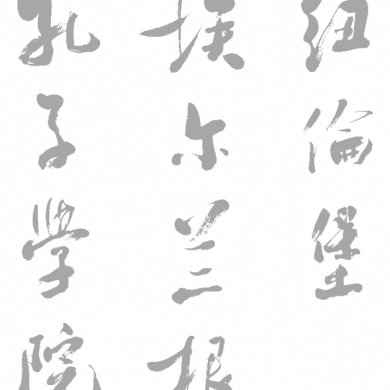 纽伦堡
埃尔兰根
孔子學院